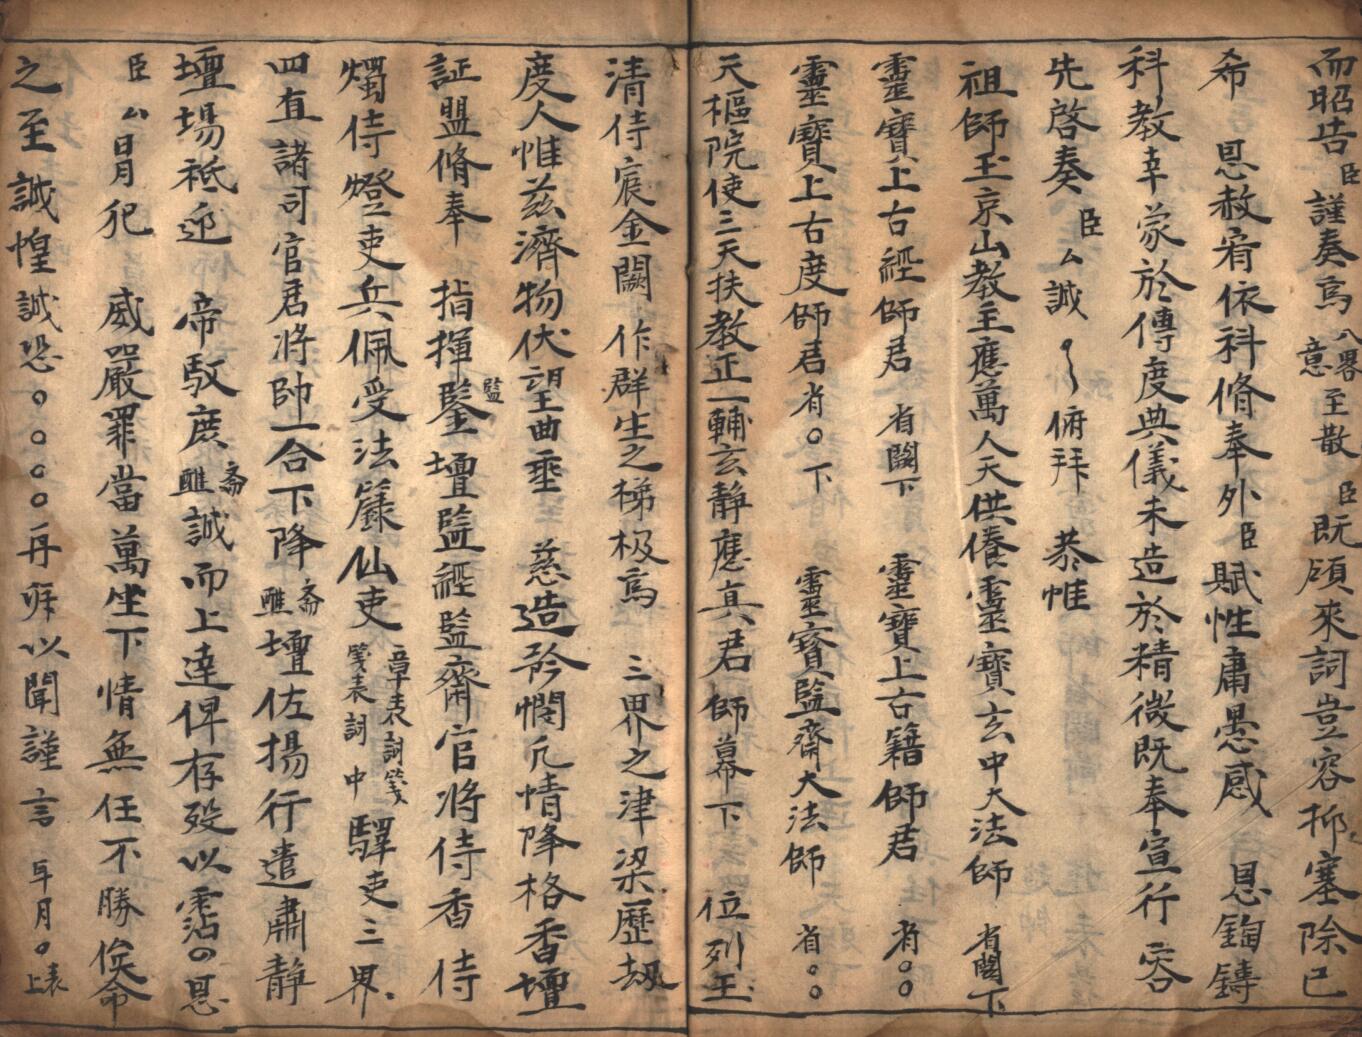 而昭告臣謹奏爲入意畧至散臣既頎來詞豈容抑塞除已
希 恩赦宥依科脩奉外臣賦性庸愚感 恩鉤鑄
科教幸蒙於傳度典儀未造於精微既奉宣行咨
先啓奏 臣厶誠 俯拜 恭惟
祖師玉京山教主應萬人天供養靈寶玄中大法師 省闗下
靈寶上古經師君 省闗下 靈寶上古籍師君 省〇〇
靈寶上古度師君省〇下 靈寶監齋大法師 省〇〇
天樞院使三天扶教正一輔玄靜應真君師幕下 位列玉
清侍宸金闕 作群生之梯极爲 三界之津梁歷劫
度人惟茲濟物伏望曲垂 慈造矜憫凡情降格香壇
証盟脩奉 指揮鑒監壇監經監齋官將侍香侍
燭侍燈吏兵佩受法籙仙吏章表詞箋箋表詞中驛吏三界
四直諸司官君將帥一合下降齋醮壇佐揚行遣肅靜
壇場祗迎 帝馭庶齋醮誠而上達俾存殁以霑の恩
臣厶冐犯 威嚴罪當萬坐下情無任不勝俟命
之至誠惶誠恐〇〇〇〇再拜以聞謹言 年月〇上表